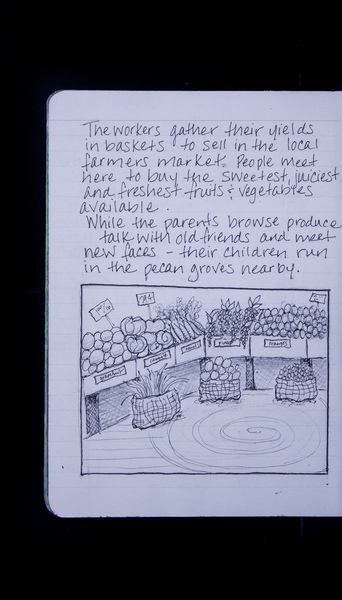 The workers gather their yields
in baskets to sell in the local
farmers market. People meet
here to buy the sweetest, juiciest
and freshest fruits & vegetables
available.
While the parents browse produce
talk with old friends and meet
new faces – their children run
in the pecan groves nearby.